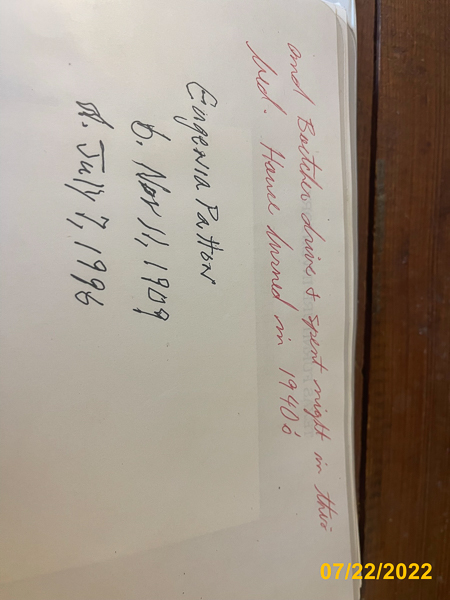 and Boitcher drive & spent night in this
bed. House burned in 1940's
Eugenia Patton
b. Nov 11, 1909
d. July 7, 1996
07/22/2022